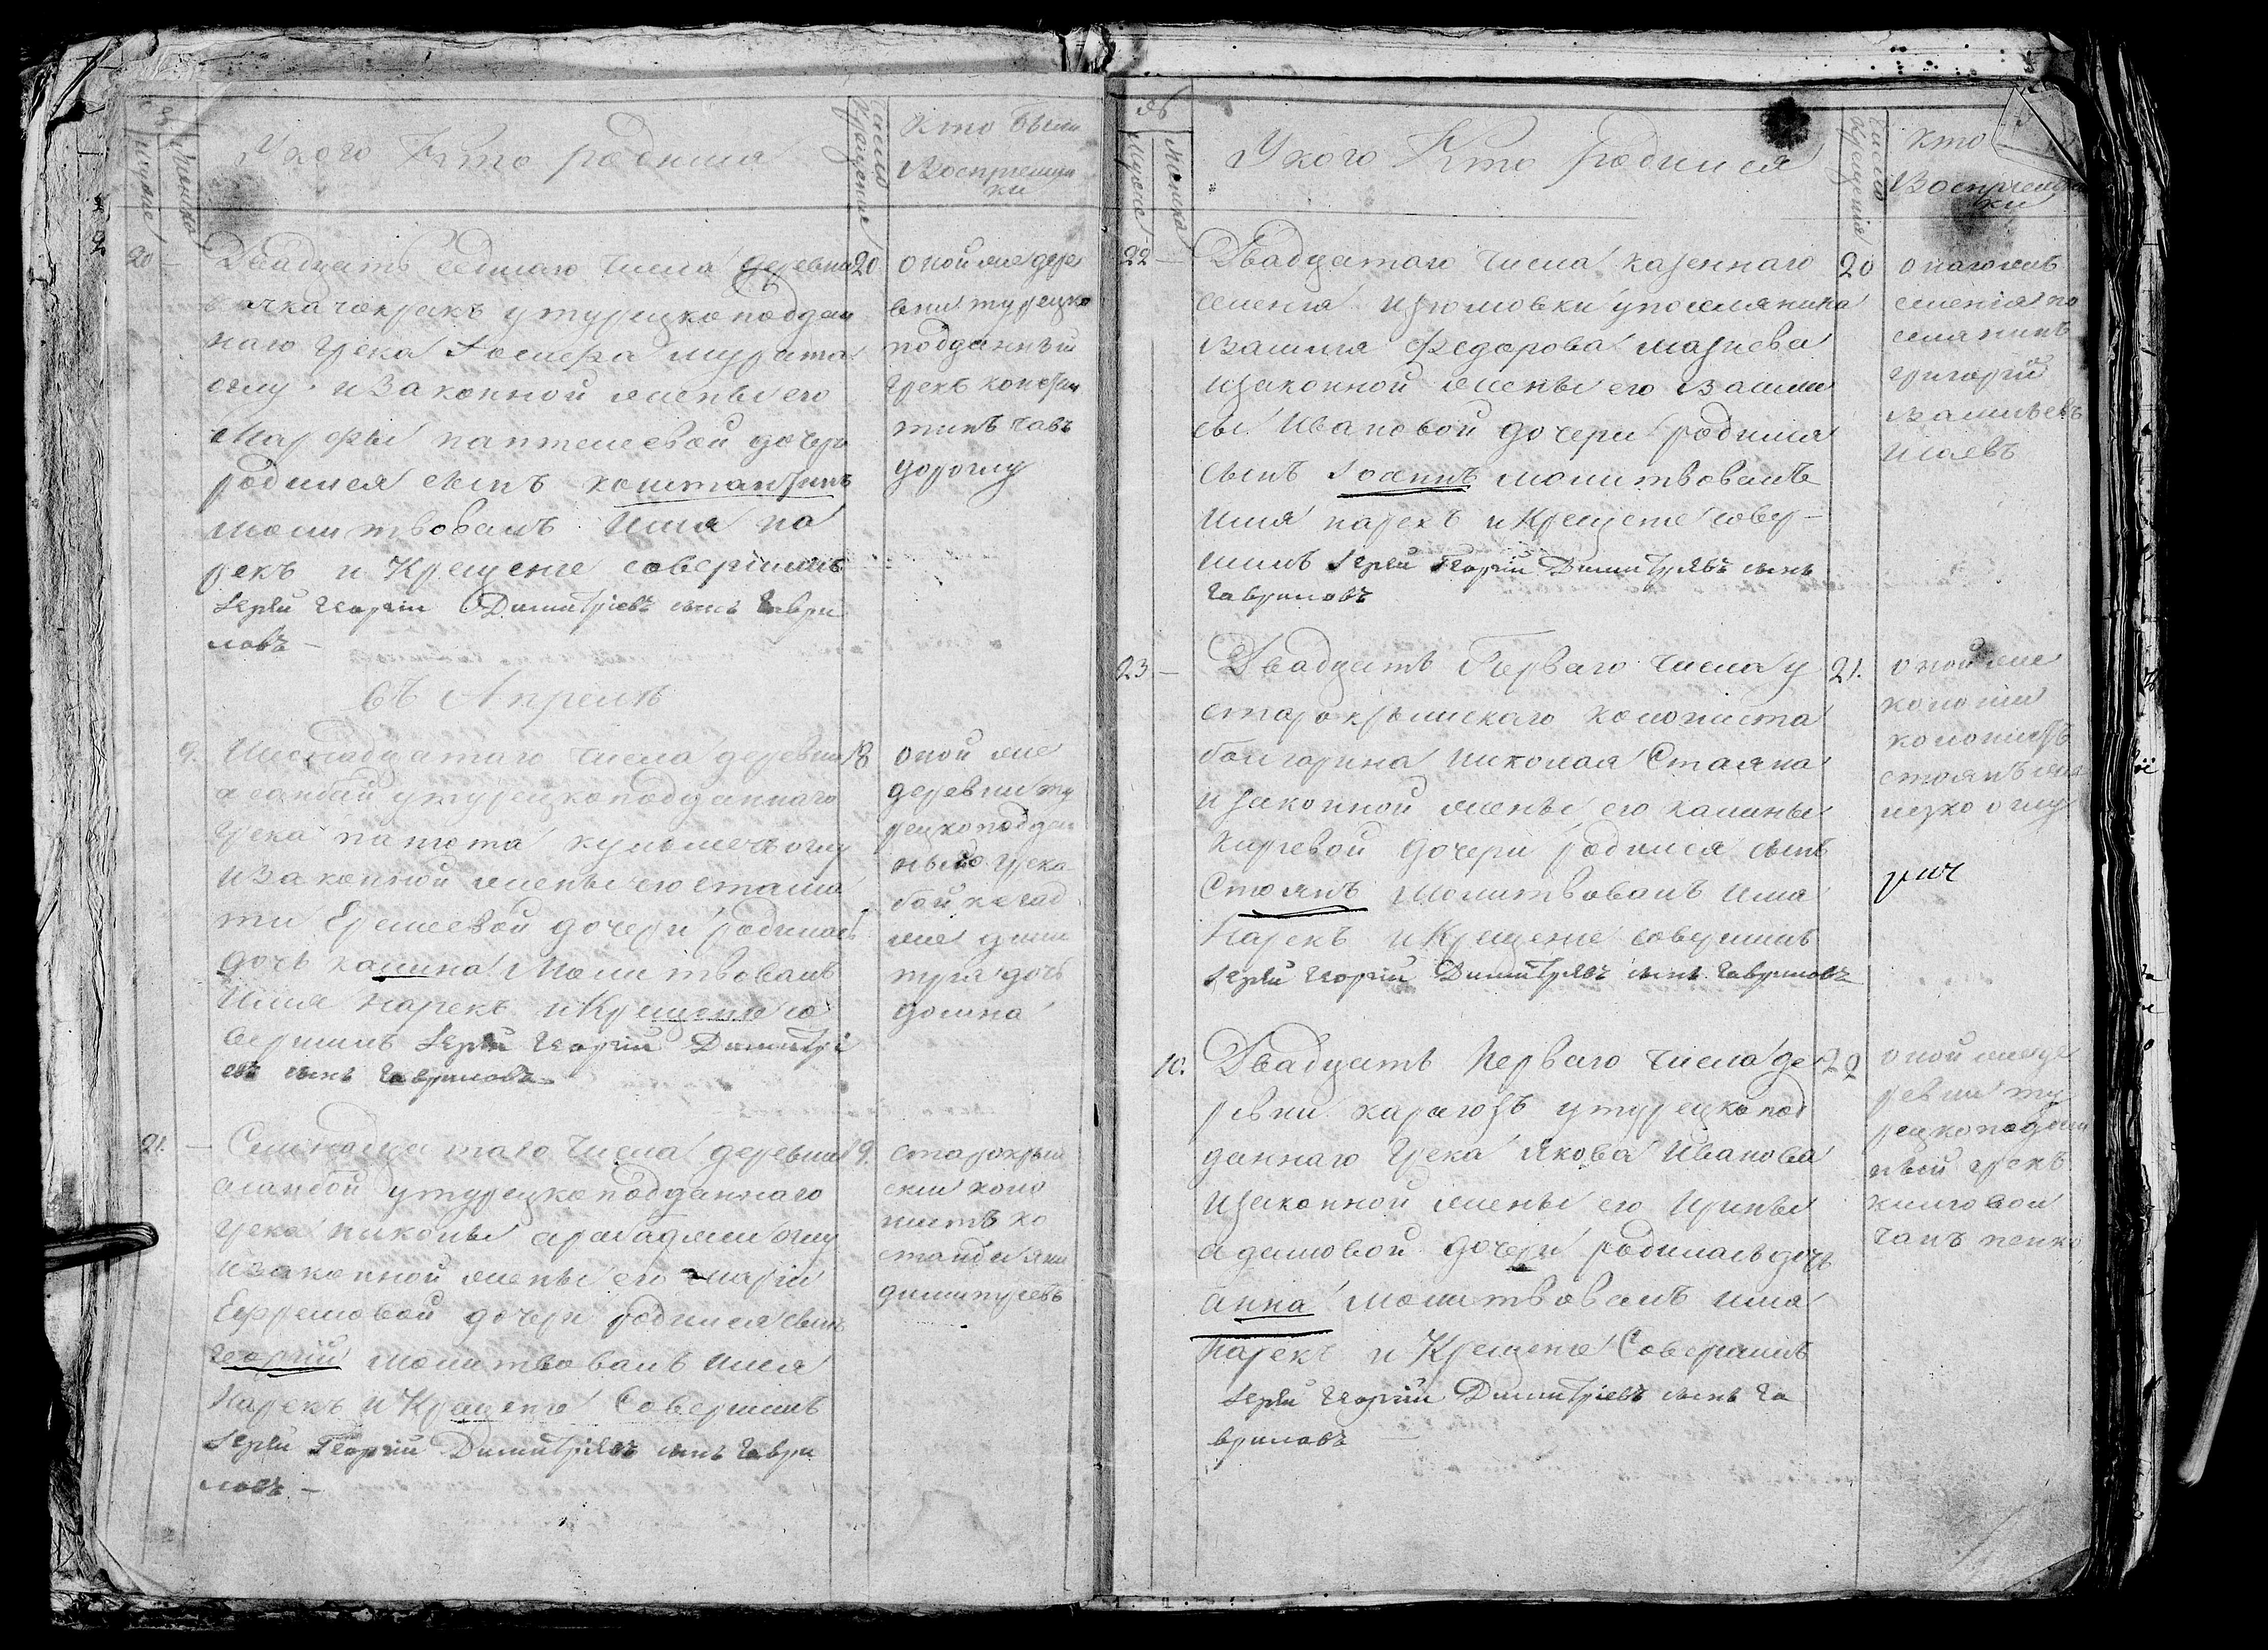 У кого Кто родился
Число крещения
Кто были
Восприемни
ки
20
Двадцать седмаго числа деревни
20
чокракъ у турецкоподдан
наго грека мурата
оглу и законной жены его
Марфы пантелеевой дочери
родился сынъ константинъ
молитвовалъ имя на
рекъ и Крещение совершилъ
Іерей Георгий Димитріевъ сынъ Гаври
ловъ
оной же дере
вни турецко
подданный
грекъ констан
тинъ
въ Апреле
9.
Шеснадцатаго числа деревни
18
у турецкоподданнаго
грека оглу
и законной жены его стама
ти дочери родилась
дочь калина молитвовалъ
имя нарекъ и Крещение со
вершилъ Іерей Георгий Димитрі
евъ сынъ Гавриловъ
оной же
деревни ту
рецкоподдан
ныго грека
дими
трия дочь
домна
21.
Семнадцатаго числа деревни
19.
у турецкоподданнаго
грека николы арабаджи оглу
и законной жены его марии
Ефремовой дочери родился сынъ
георгий молитвовалъ имя
нарекъ и Крещение Совершилъ
Іерей Георгий Димитріевъ сынъ Гаври
ловъ
старокрым
ский коло
нистъ ко
стандиян
У кого Кто родился
Число крещения
Кто
Восприемни
ки
22
Двадцатаго числа казеннаго
20
селения изюмовки у поселянина
василия Федорова
и законной жены его васили
сы Ивановой дочери родился
сынъ Іоаннъ молитвовалъ
имя нарекъ и Крещение совер-
шилъ Іерей Георгий Димитріевъ сынъ
Гавриловъ
онаго же
селения по
селянинъ
григорий
васильевъ
исаевъ
23
Двадцать Перваго числа у
21.
старокрымскаго колониста
болгарина николая Стояна
и законной жены его калины
киревой дочери родился сынъ
Стоянъ молитвовалъ имя
Нарекъ и Крещение совершилъ
Іерей Георгий Димитріевъ сынъ Гавриловъ
оной же
колонии
колонистъ
стоянъ
оглу
10.
Двадцать Перваго числа де
22
ревни карагозъ у турецкопод
даннаго грека Якова Иванова
и законной жены его Ирины
адамовой дочери родилась дочь
анна молитвовалъ имя
Нарекъ и Крещение Совершилъ
Іерей Георгий Димитріевъ сынъ Га
вриловъ
оной же де
ревни ту
рецкоподдан
ный грекъ